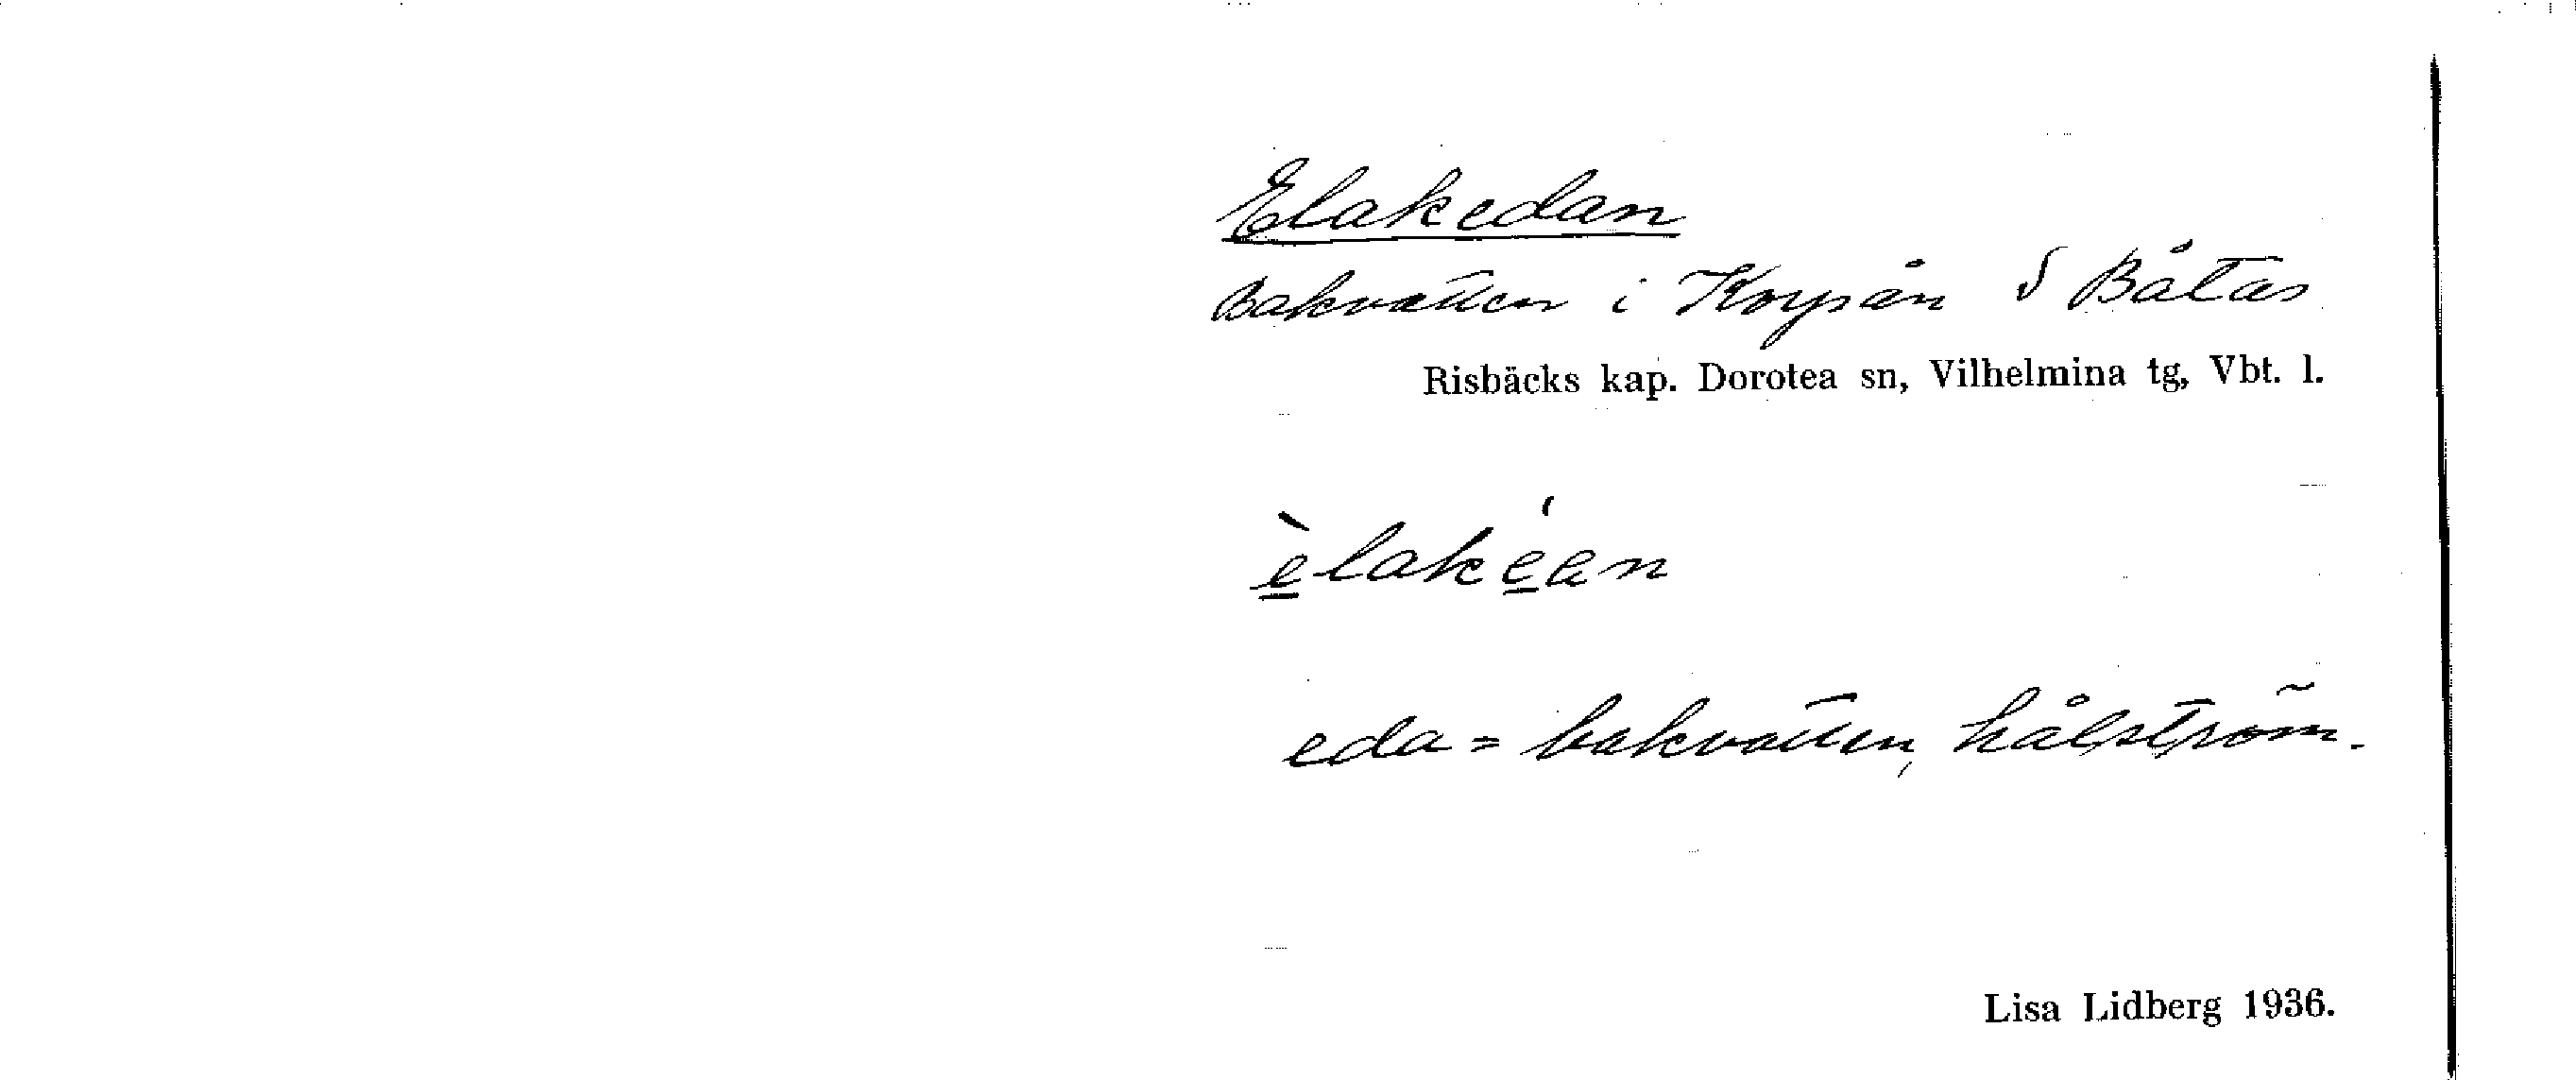 Elakedan
Bakvatten i Korpån S Båtas
Risbäcks kap. Dorotea sn, Vilhelmina tg, Vbt. l.
è̱laké̱an
eda = bakvatten, hålström.
Lisa Lidberg 1936.